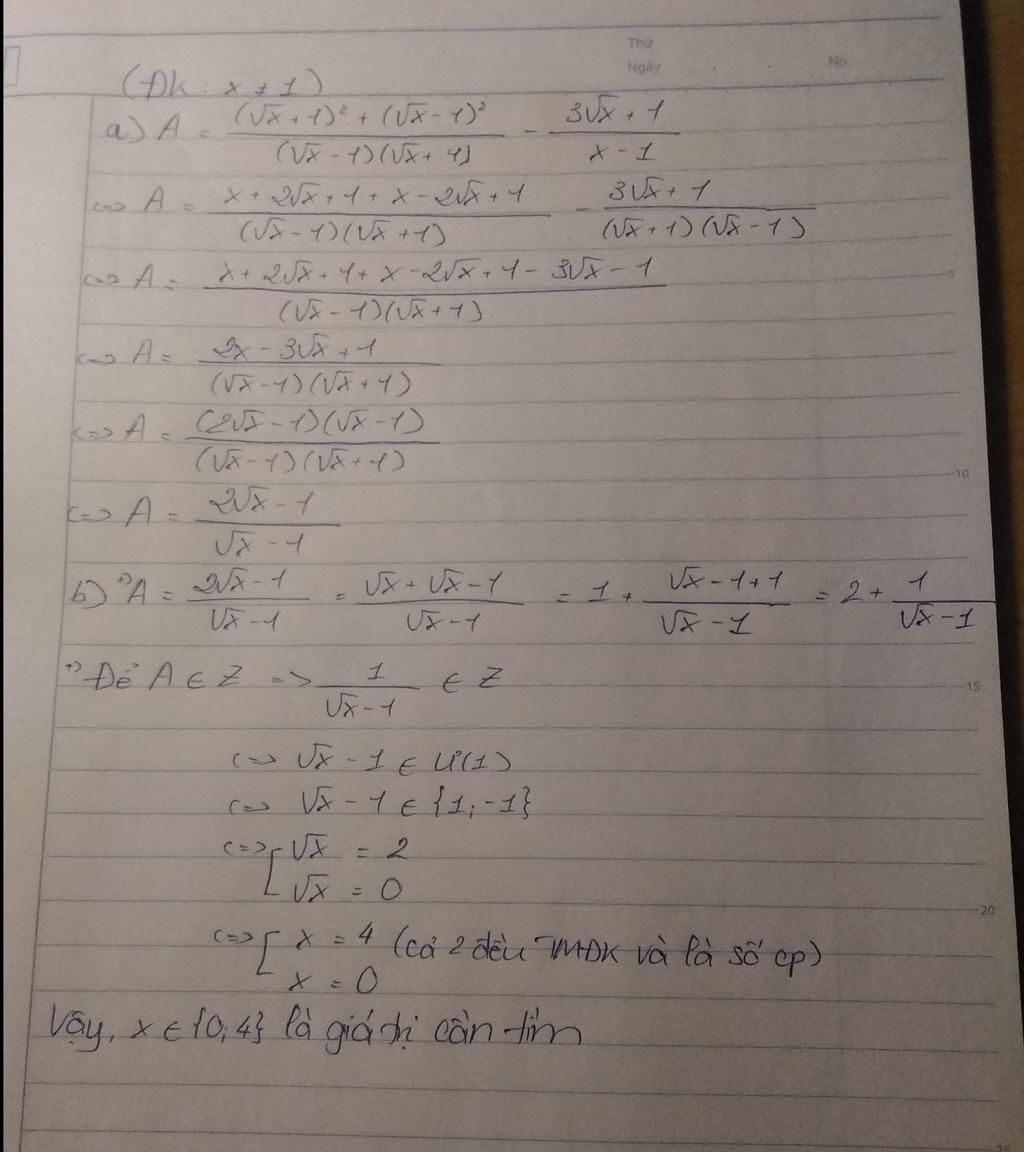 Thứ
Ngày . . No.
(ĐK: x ≠ 1)
a) A = ((√x + 1)² + (√x - 1)²) / ((√x - 1)(√x + 1)) - (3√x + 1) / (x - 1)
<=> A = (x + 2√x + 1 + x - 2√x + 1) / ((√x - 1)(√x + 1)) - (3√x + 1) / ((√x + 1)(√x - 1))
<=> A = (x + 2√x + 1 + x - 2√x + 1 - 3√x - 1) / ((√x - 1)(√x + 1))
5
<=> A = (2x - 3√x + 1) / ((√x - 1)(√x + 1))
<=> A = ((2√x - 1)(√x - 1)) / ((√x - 1)(√x + 1))
10
<=> A = (2√x - 1) / (√x - 1)
b) *) A = (2√x - 1) / (√x - 1) = (√x + √x - 1) / (√x - 1) = 1 + (√x - 1 + 1) / (√x - 1) = 2 + 1 / (√x - 1)
*) Để A ∈ Z => 1 / (√x - 1) ∈ Z
15
<=> √x - 1 ∈ Ư(1)
<=> √x - 1 ∈ {1; -1}
<=> [ √x = 2
√x = 0
20
<=> [ x = 4 (cả 2 đều TMĐK và là số cp)
x = 0
Vậy, x ∈ {0; 4} là giá trị cần tìm